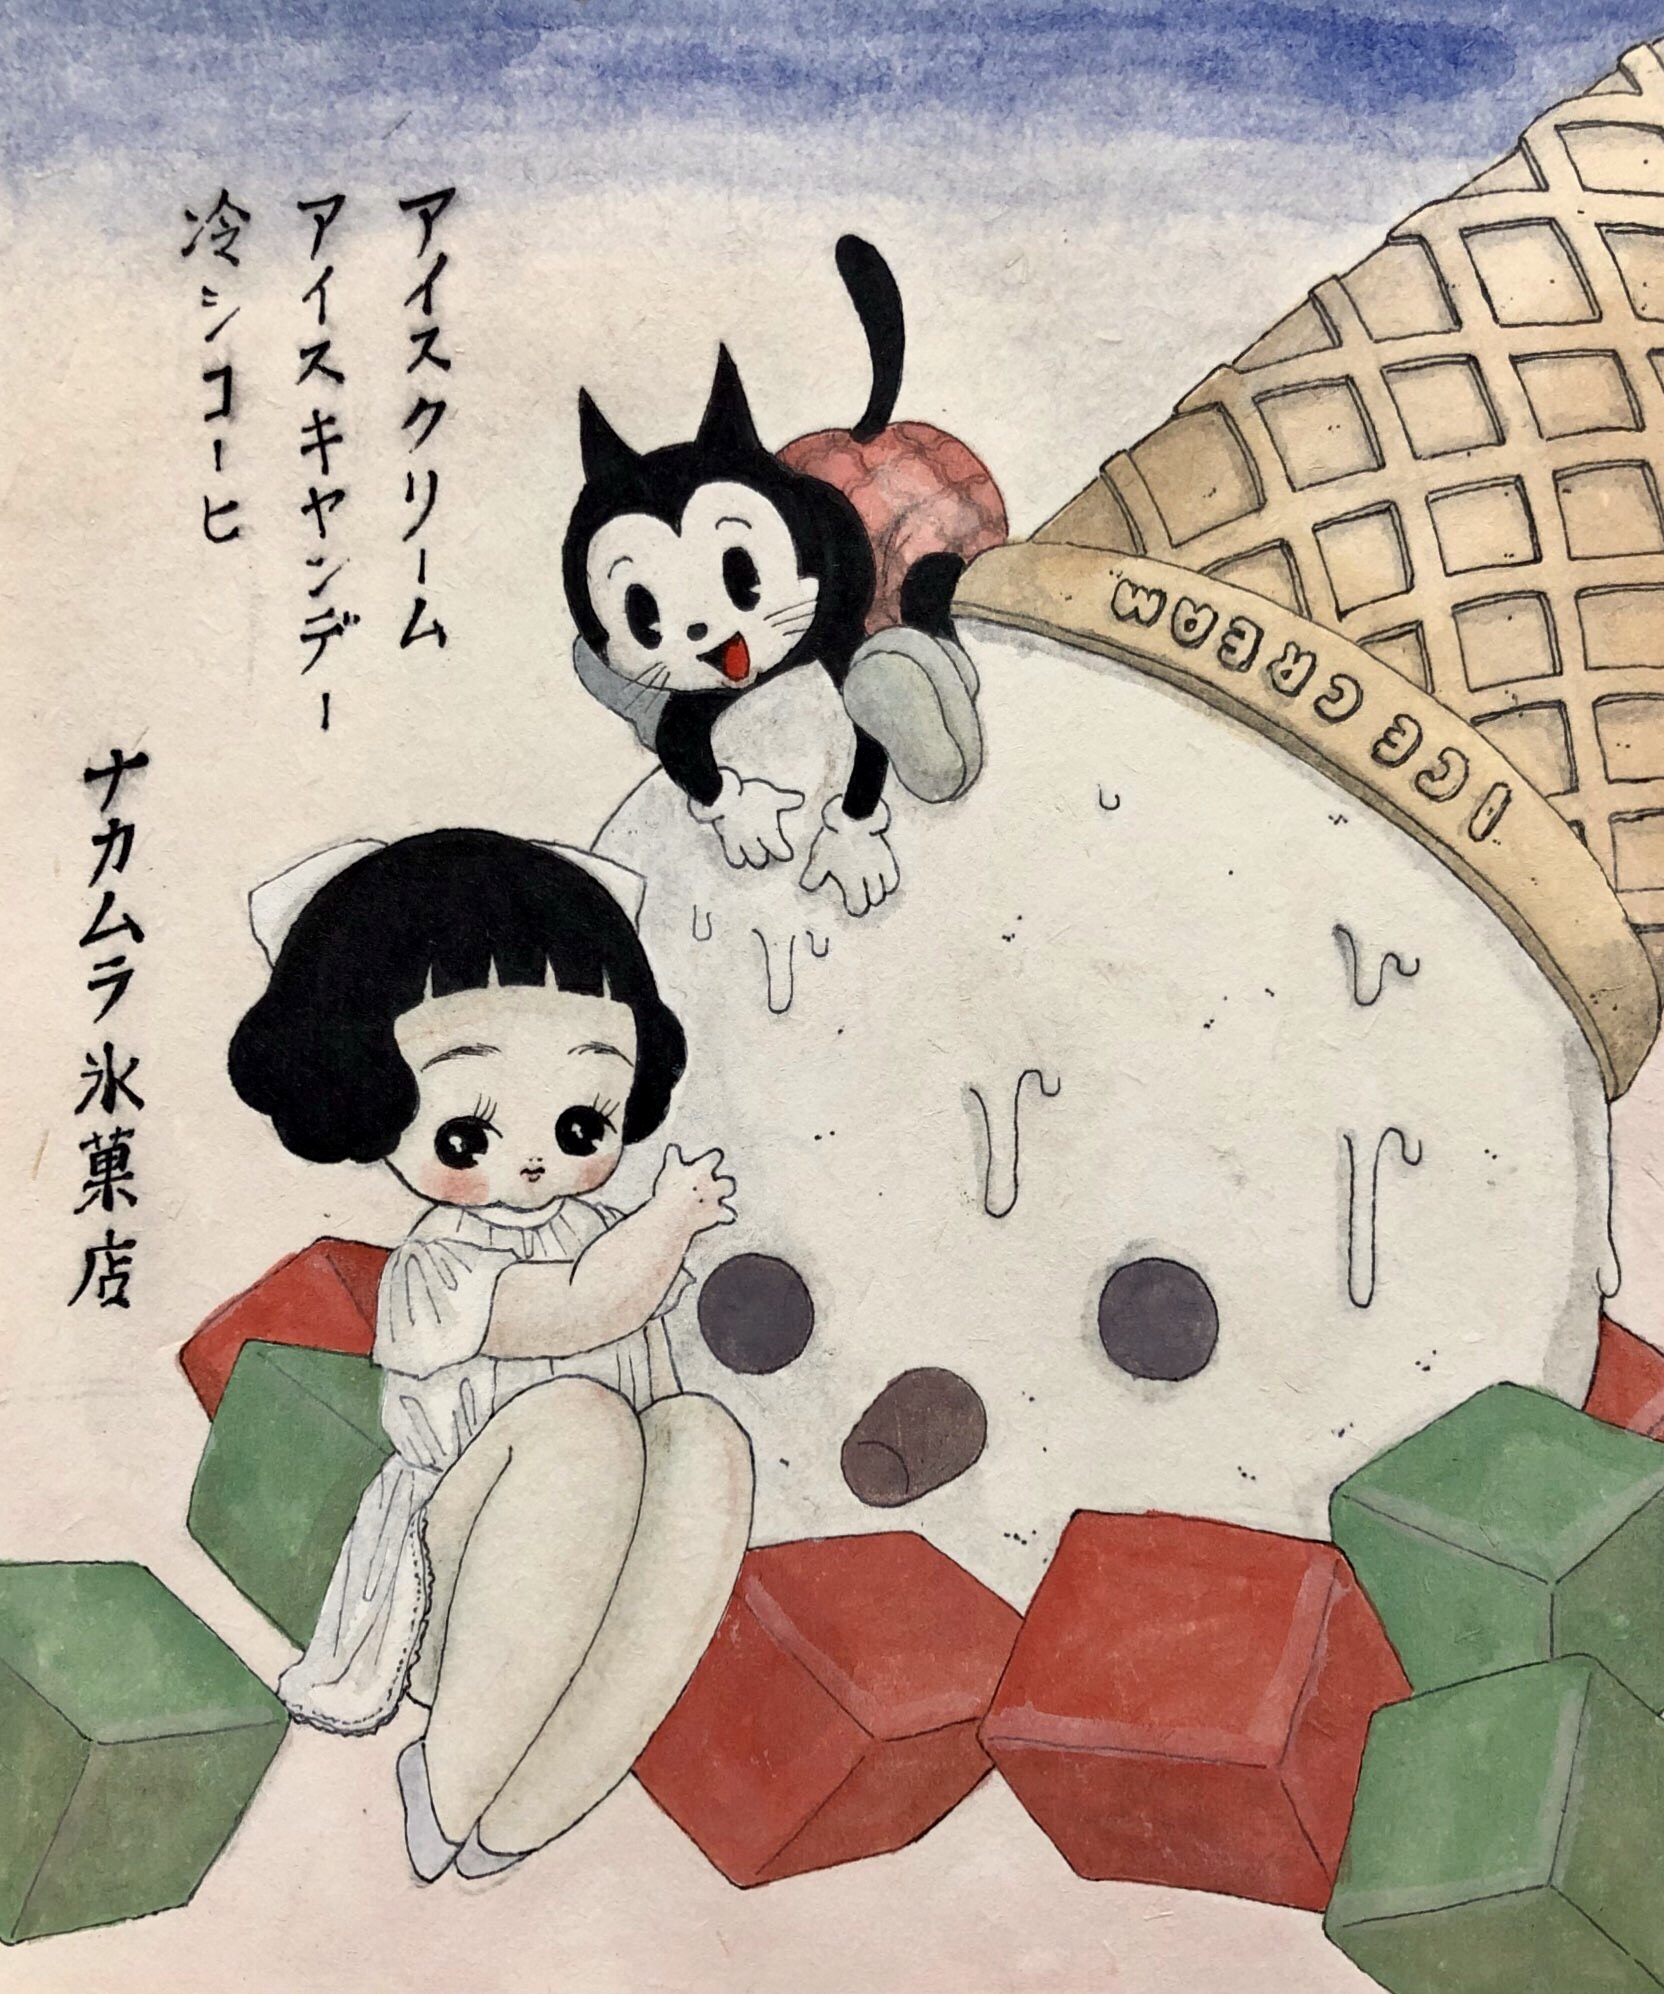 アイスクリーム
アイスキヤンデー
冷シコーヒ
ナカムラ氷菓店
ICE CREAM